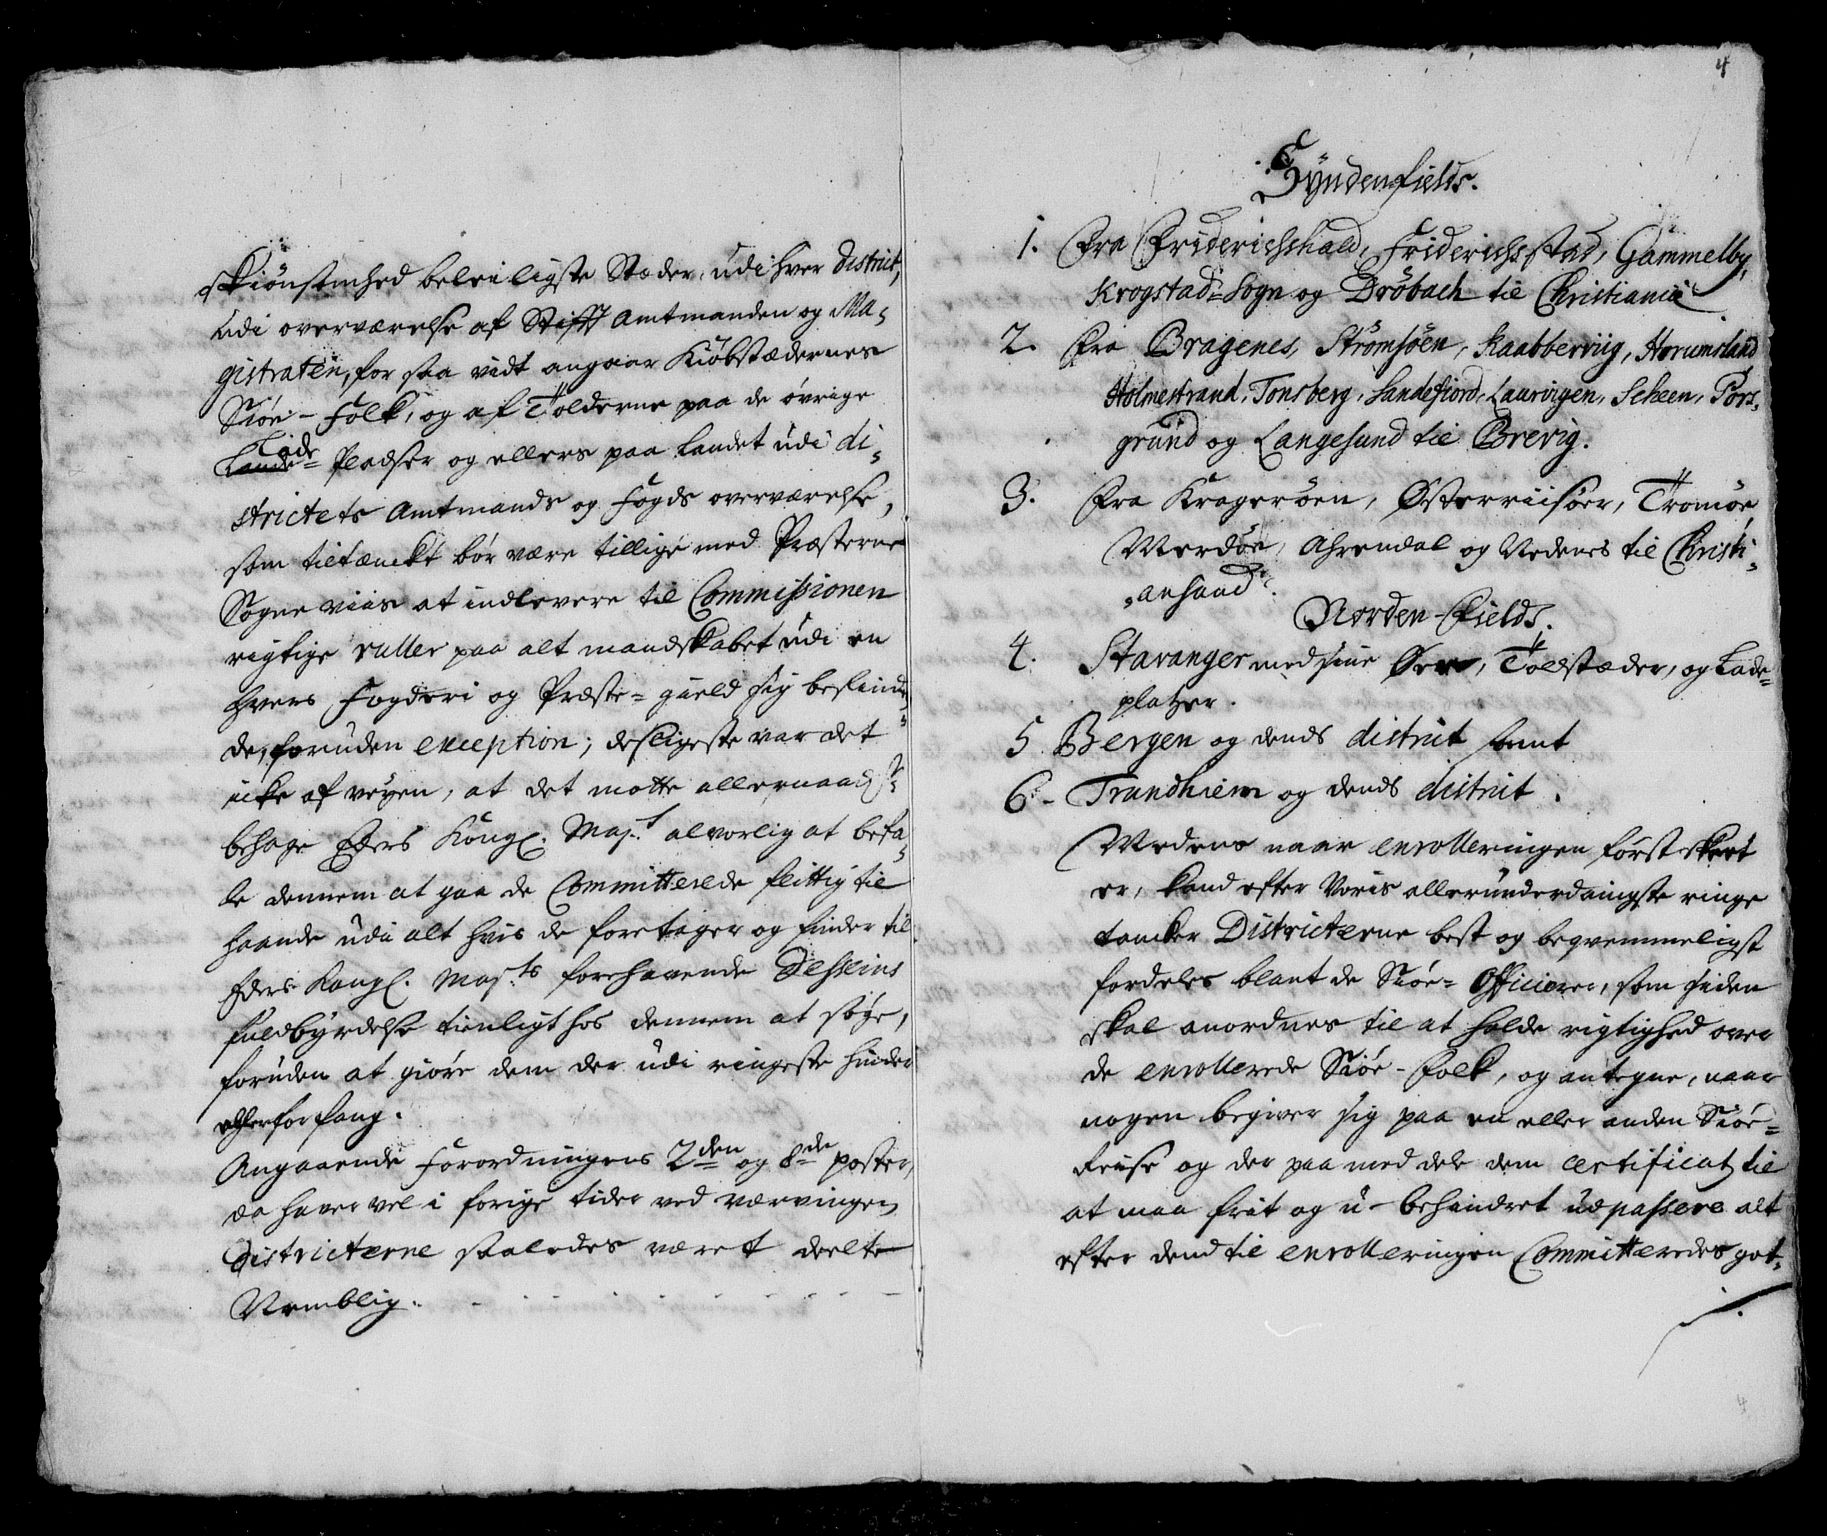 skiönsomhed beleiligste Stæder, udi hver district,
udi overværelse af Stifft Amtmanden og Ma-
gistraten, for saa vidt angaar Kiöbstædernes
Siöe-Folk, og af Tolderne paa de övrige
Lade
Lande- Pladser og ellers paa Landet udi di-
strictets Amtmands og Fogds overværelse,
som tiltænckt bör være tillige med Præsterne
Sogneviis at indlevere til Commissionen
rigtige ruller paa alt mandskabet udi en
hvers Fogderi og Præste-gield sig befinden-
de, foruden exception; desligeste var det
icke af veyen, at det motte allernaadigst
behage Eders Kongl. Maj.t alvorlig at befa-
le dennem at gaa de Committerede flittig til
haande udi alt hvis de foretager og finder til
Eders Kongl. Maj.ts forehavende Desseins
fuldbyrdelse tienligt hos dennem at söge,
foruden at giöre dem der udi ringeste hinder
eller forfang.
Angaaende Forordningens 2den og 8de poster,
da haver vel i forige tider ved værvingen
Districterne saaledes været deelte
Nemblig.
4
Syndenfields.
1. Fra Friderichshald, Friderichsstad, Gammelby,
Krogstad-Sogn og Dröbach til Christiania
2. Fra Bragenes, Strömsöen, Kaabberviig, Horumsland
Holmestrand, Tonsberg, Sandefiord, Laurvigen, Scheen, Pors-
grund og Langesund til Brevig.
3. Fra Krageröen, Österriisöer, Tromöe,
Merdöe, Ahrendal og Nedenes til Christi-
ansand.
Norden-Fields.
4. Stavanger med sine Öer, Toldstæder, og Lade-
platzer.
5 Bergen og dends district samt
6. Trundhiem og dends district.
Medens naar enrolleringen först skeet
er, kand efter Voris allerunderdanigste ringe
tancker Districterne best og beqvemmeligst
fordeles blant de Siöe-Officierer, som siden
skal anordnes til at holde rigtighed over
de enrollerede Siöe-Folk, og antegne, naar
nogen begiver sig paa en eller anden Siöe-
Reise og der paa meddele dem certificat til
at maa frit og u-behindret udpassere alt
efter dend til enrolleringen Committeredes got-
4